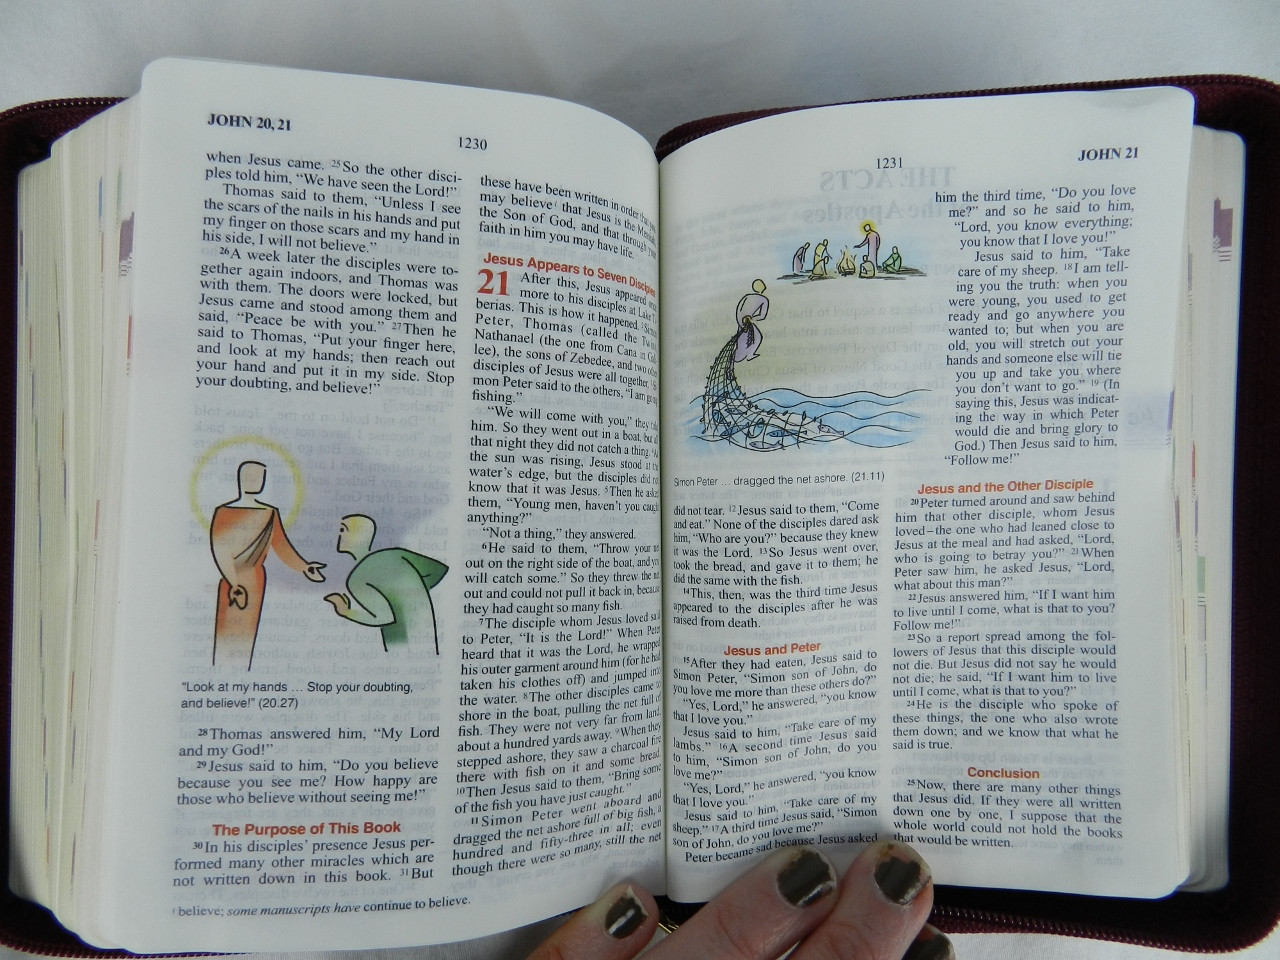 JOHN 20, 21
1230
when Jesus came. 25So the other disci-
ples told him, “We have seen the Lord!”
Thomas said to them, “Unless I see
the scars of the nails in his hands and put
my finger on those scars and my hand in
his side, I will not believe.”
26A week later the disciples were to-
gether again indoors, and Thomas was
with them. The doors were locked, but
Jesus came and stood among them and
said, “Peace be with you.” 27Then he
said to Thomas, “Put your finger here,
and look at my hands; then reach out
your hand and put it in my side. Stop
your doubting, and believe!”
“Look at my hands ... Stop your doubting,
and believe!” (20.27)
28Thomas answered him, “My Lord
and my God!”
29Jesus said to him, “Do you believe
because you see me? How happy are
those who believe without seeing me!”
The Purpose of This Book
30In his disciples’ presence Jesus per-
formed many other miracles which are
not written down in this book. 31But
these have been written in order that
may believe that Jesus is the
the Son of God, and that through
faith in him you may have life.
Jesus Appears to Seven
21 After this, Jesus appeared
more to his disciples at Lake
berias. This is how it happened.
Peter, Thomas (called the
Nathanael (the one from Cana in
lee), the sons of Zebedee, and two
disciples of Jesus were all together.
mon Peter said to the others, “I am
fishing.”
“We will come with you,” they
him. So they went out in a boat, but
that night they did not catch a thing.
the sun was rising, Jesus stood at
water’s edge, but the disciples did
know that it was Jesus. 5Then he
them, “Young men, haven’t you
anything?”
“Not a thing,” they answered.
6He said to them, “Throw your
out on the right side of the boat, and
will catch some.” So they threw the
out and could not pull it back in, because
they had caught so many fish.
7The disciple whom Jesus loved
to Peter, “It is the Lord!” When
heard that it was the Lord, he wrapped
his outer garment around him (for he
taken his clothes off) and jumped
the water. 8The other disciples came
shore in the boat, pulling the net full
fish. They were not very far from land,
about a hundred yards away. 9When they
stepped ashore, they saw a charcoal
there with fish on it and some bread.
10Then Jesus said to them, “Bring some
of the fish you have just caught.”
11Simon Peter went aboard and
dragged the net ashore full of big fish, a
hundred and fifty-three in all; even
though there were so many, still the net
believe; some manuscripts have continue to believe.
1231
JOHN 21
Simon Peter ... dragged the net ashore. (21.11)
did not tear. 12Jesus said to them, “Come
and eat.” None of the disciples dared ask
him, “Who are you?” because they knew
it was the Lord. 13So Jesus went over,
took the bread, and gave it to them; he
did the same with the fish.
14This, then, was the third time Jesus
appeared to the disciples after he was
raised from death.
Jesus and Peter
15After they had eaten, Jesus said to
Simon Peter, “Simon son of John, do
you love me more than these others do?”
“Yes, Lord,” he answered, “you know
that I love you.”
Jesus said to him, “Take care of my
lambs.” 16A second time Jesus said
to him, “Simon son of John, do you
love me?”
“Yes, Lord,” he answered, “you know
that I love you.”
Jesus said to him, “Take care of my
sheep.” 17A third time Jesus said, “Simon
son of John, do you love me?”
Peter became sad because Jesus asked
him the third time, “Do you love
me?” and so he said to him,
“Lord, you know everything;
you know that I love you!”
Jesus said to him, “Take
care of my sheep. 18I am tell-
ing you the truth: when you
were young, you used to get
ready and go anywhere you
wanted to; but when you are
old, you will stretch out your
hands and someone else will tie
you up and take you where
you don’t want to go.” 19(In
saying this, Jesus was indicat-
ing the way in which Peter
would die and bring glory to
God.) Then Jesus said to him,
“Follow me!”
Jesus and the Other Disciple
20Peter turned around and saw behind
him that other disciple, whom Jesus
loved—the one who had leaned close to
Jesus at the meal and had asked, “Lord,
who is going to betray you?” 21When
Peter saw him, he asked Jesus, “Lord,
what about this man?”
22Jesus answered him, “If I want him
to live until I come, what is that to you?
Follow me!”
23So a report spread among the fol-
lowers of Jesus that this disciple would
not die. But Jesus did not say he would
not die; he said, “If I want him to live
until I come, what is that to you?”
24He is the disciple who spoke of
these things, the one who also wrote
them down; and we know that what he
said is true.
Conclusion
25Now, there are many other things
that Jesus did. If they were all written
down one by one, I suppose that the
whole world could not hold the books
that would be written.